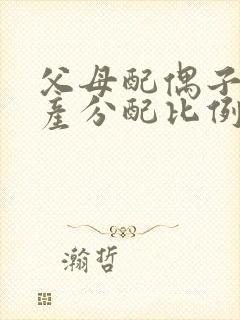 父母配偶子
产分配比例
瀚哲